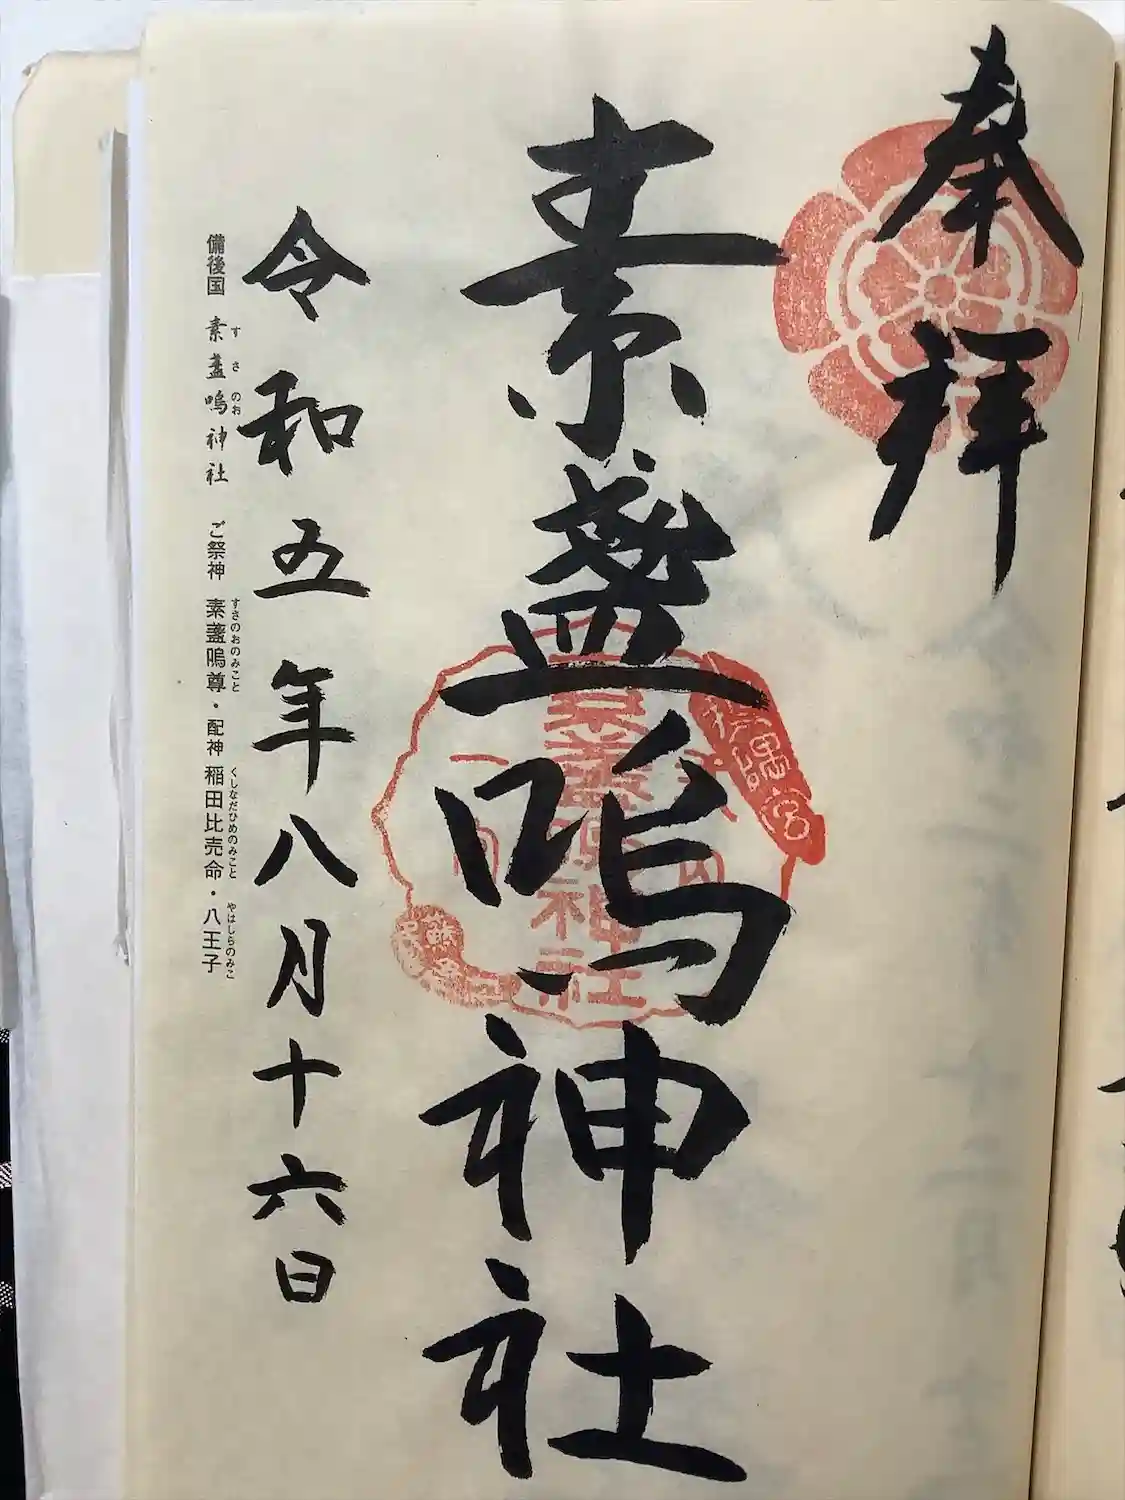 奉拝
素盞嗚神社
素盞嗚神社
令和五年八月十六日
備後国 素盞嗚神社 ご祭神 素盞嗚尊・配神 稲田比売命・八王子
す さ のお すさのおのみこと くしなだひめのみこと やはしらのみこ